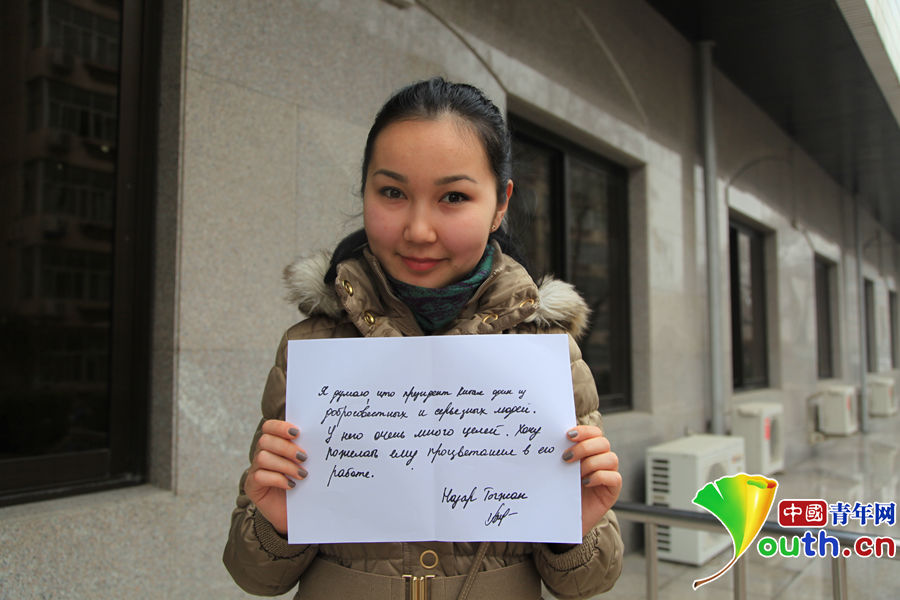 Я думаю, что президент Китая один из
добросовестных и серьезных людей.
У него очень много целей. Хочу
пожелать ему процветания в его
работе.
Назар Тогжан
中國青年网
Youth.cn